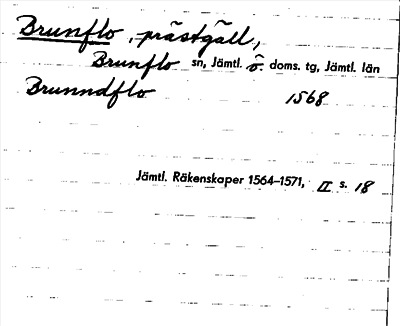 Brunflo, prästgäll,
Brunflo sn, Jämtl. ö. doms. tg, Jämtl. län
Brunndflo 1568
Jämtl. Räkenskaper 1564–1571, II s. 18